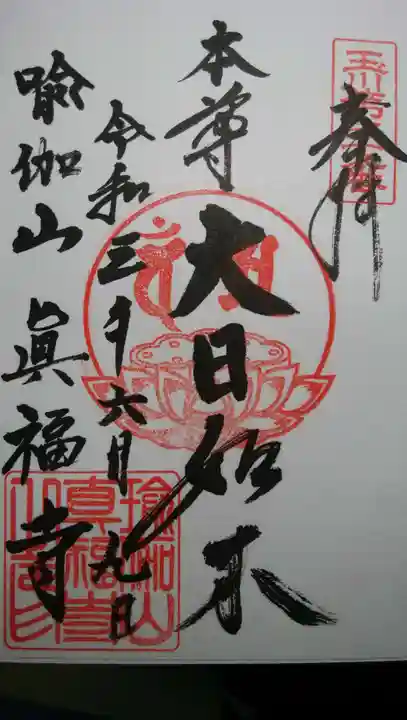 奉拝
本尊 大日如来
令和三年六月九日
瑜伽山 眞福寺
瑜伽山真福寺